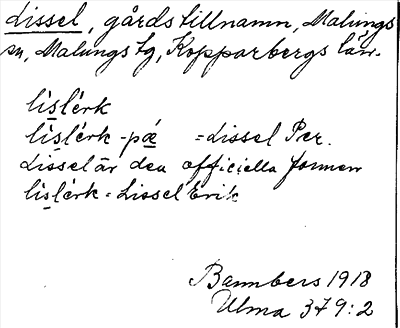 Lissel, gårdstillnamn, Malungs
sn, Malungs tg, Kopparbergs län.
lislérk
lislérk-pæ = Lissel Per.
Lissel är den officiella formen
lislérk = Lissel Erik
Bannbers 1918
Ulma 379:2